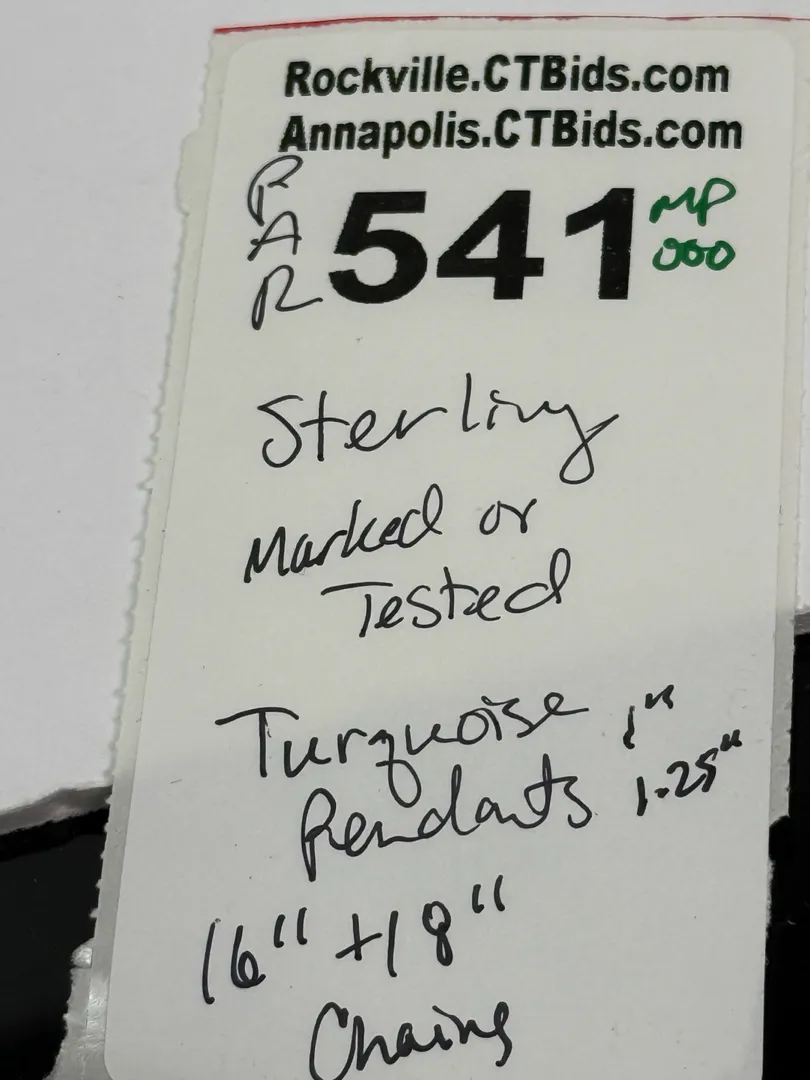 Rockville.CTBids.com
Annapolis.CTBids.com
PAR
541
MP
000
Sterling
Marked or
Tested
Turquoise 1"
Pendants 1.25"
16" + 18"
Chains